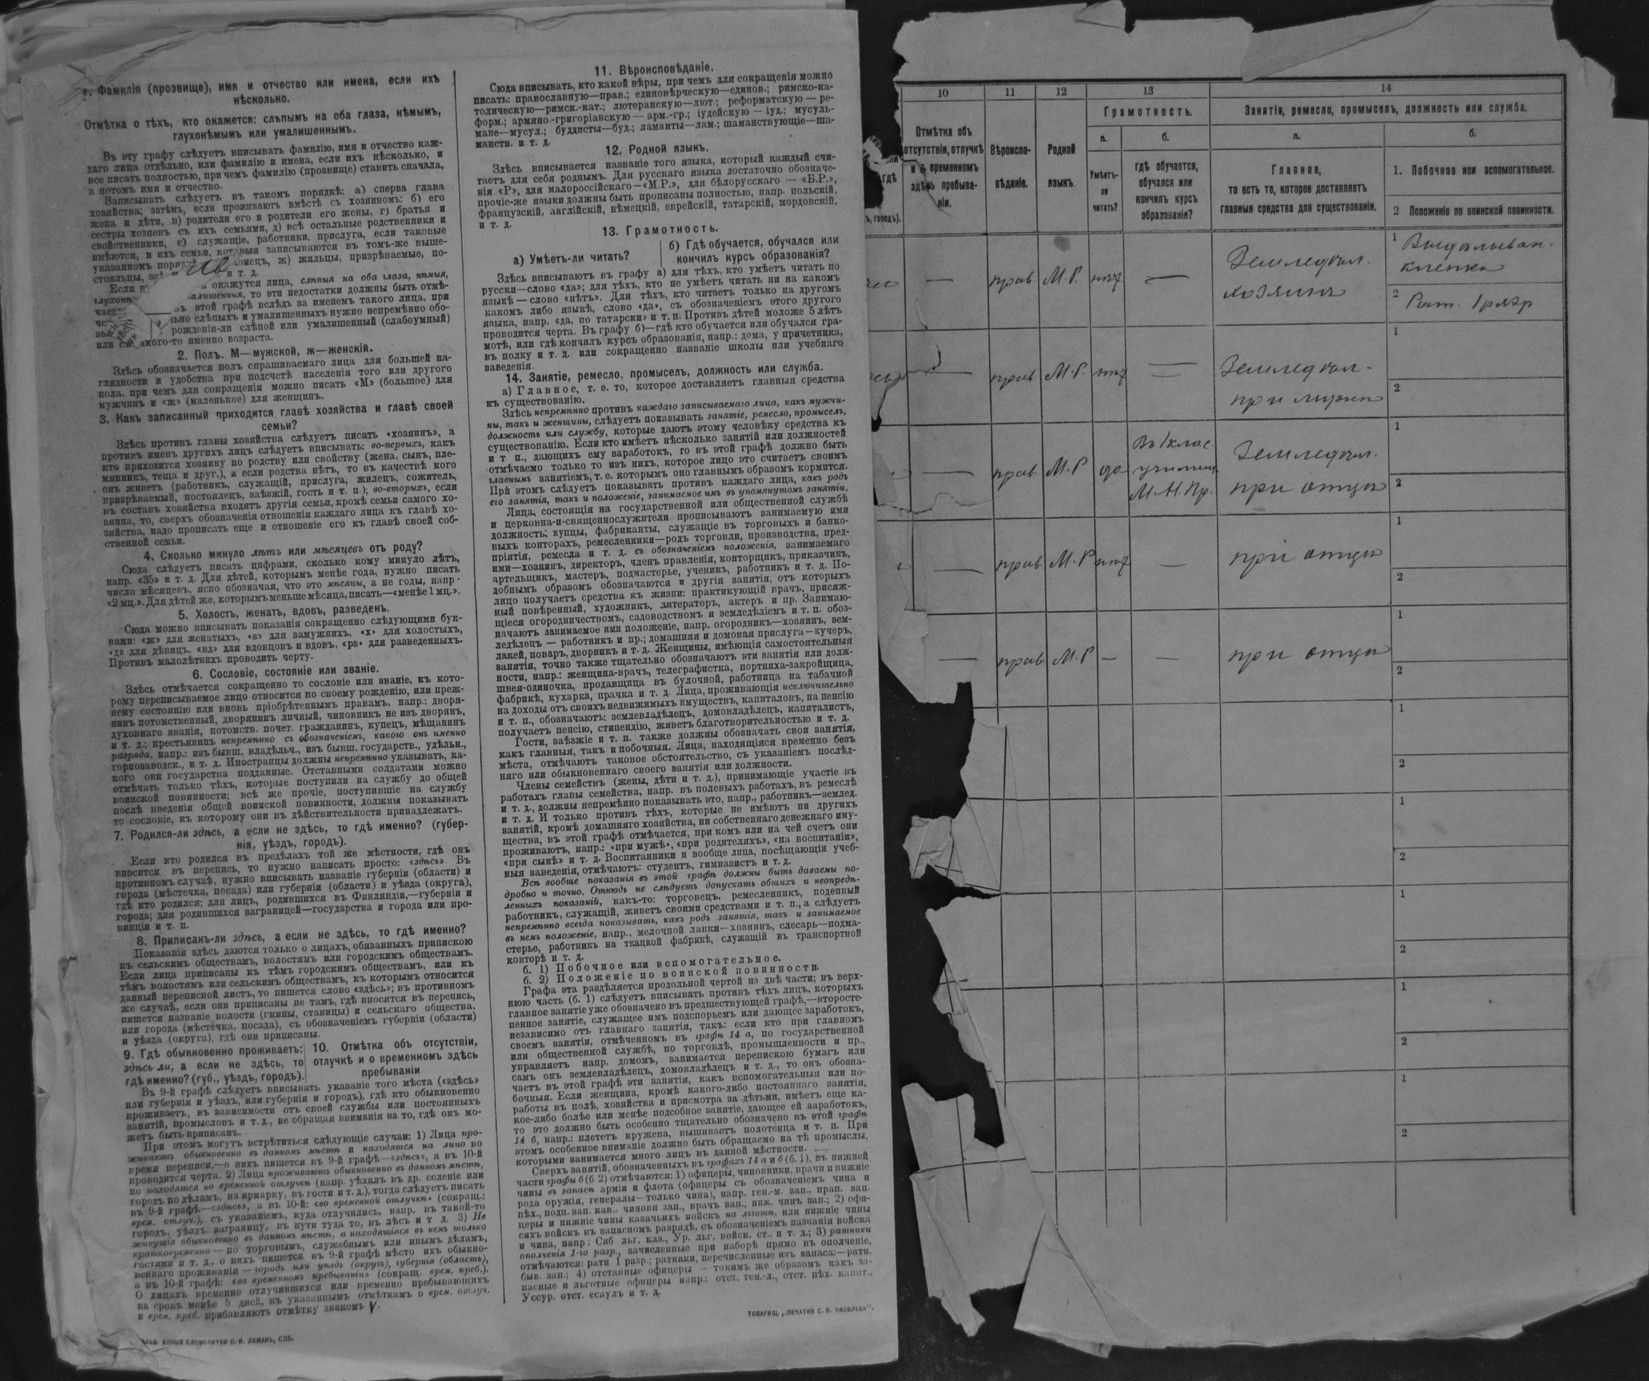 1. Фамилія (прозвище), имя и отчество или имена, если ихъ
нѣсколько.
Отмѣтка о тѣхъ, кто окажется: слѣпымъ на оба глаза, нѣмымъ,
глухонѣмымъ или умалишеннымъ.
Въ эту графу слѣдуетъ вписывать фамилію, имя и отчество каж-
даго лица отдѣльно, или фамилію и имена, если ихъ нѣсколько, и
все писать полностью, при чемъ фамилію (прозвище) ставить сначала,
а потомъ имя и отчество.
Записывать слѣдуетъ въ такомъ порядкѣ: а) сперва глава
хозяйства; затѣмъ, если проживаютъ вмѣстѣ съ хозяиномъ: б) его
жена и дѣти, в) родители его и родители его жены, г) братья и
сестры хозяевъ съ ихъ семьями, д) всѣ остальные родственники и
свойственники, е) служащіе, работники, прислуга, если таковые
имѣются, и ихъ семьи, которыя записываются въ томъ-же выше-
указанномъ поряд ец, ж) жильцы, призрѣваемые, по-
стояльцы, и т. д.
Если окажутся лица, слѣпыя на оба глаза, нѣмыя,
то эти недостатки должны быть отмѣ-
этой графѣ вслѣдъ за именемъ такого лица, при
слѣпыхъ и умалишенныхъ нужно непремѣнно обо-
рожденія-ли слѣпой или умалишенный (слабоумный)
или съ какого-то именно возраста.
2. Полъ. М—мужской, ж—женскій.
Здѣсь обозначается полъ спрашиваемаго лица для большей на-
глядности и удобства при подсчетѣ населенія того или другого
пола, при чемъ для сокращенія можно писать «М» (большое) для
мужчинъ и «ж» (маленькое) для женщинъ.
3. Какъ записанный приходится главѣ хозяйства и главѣ своей
семьи?
Здѣсь противъ главы хозяйства слѣдуетъ писать «хозяинъ», а
противъ именъ другихъ лицъ слѣдуетъ вписывать: во-первыхъ, какъ
кто приходится хозяину по родству или свойству (жена, сынъ, пле-
мянникъ, теща и друг.), а если родства нѣтъ, то въ качествѣ кого
онъ живетъ (работникъ, служащій, прислуга, жилецъ, сожитель,
призрѣваемый, постоялецъ, заѣзжій, гость и т. п.); во-вторыхъ, если
въ составъ хозяйства входятъ другія семьи, кромѣ семьи самого хо-
зяина, то, сверхъ обозначенія отношенія каждаго лица къ главѣ хо-
зяйства, надо прописать еще и отношеніе его къ главѣ своей соб-
ственной семьи.
4. Сколько минуло лѣтъ или мѣсяцевъ отъ роду?
Сюда слѣдуетъ писать цифрами, сколько кому минуло лѣтъ,
напр. «35» и т. д. Для дѣтей, которымъ менѣе года, нужно писать
число мѣсяцевъ, ясно обозначая, что это мѣсяцы, а не годы, напр.
«2 мц.». Для дѣтей же, которымъ меньше мѣсяца, писать—«менѣе 1 мц.».
5. Холостъ, женатъ, вдовъ, разведенъ.
Сюда можно вписывать показанія сокращенно слѣдующими бук-
вами: «ж» для женатыхъ, «з» для замужнихъ, «х» для холостыхъ,
«д» для дѣвицъ, «вд» для вдовцовъ и вдовъ, «рв» для разведенныхъ.
Противъ малолѣтнихъ проводить черту.
6. Сословіе, состояніе или званіе.
Здѣсь отмѣчается сокращенно то сословіе или званіе, къ кото-
рому переписываемое лицо относится по своему рожденію, или преж-
нему состоянію или вновь пріобрѣтеннымъ правамъ, напр.: дворя-
нинъ потомственный, дворянинъ личный, чиновникъ не изъ дворянъ,
духовнаго званія, потомств. почет. гражданинъ, купецъ, мѣщанинъ
и т. д.; крестьянинъ непремѣнно съ обозначеніемъ, какого онъ именно
разряда, напр.: изъ бывш. владѣльч., изъ бывш. государств., удѣльн.,
горнозаводск., и т. д. Иностранцы должны непремѣнно указывать, ка-
кого они государства подданные. Отставными солдатами можно
отмѣчать только тѣхъ, которые поступили на службу до общей
воинской повинности; всѣ же прочіе, поступившіе на службу
послѣ введенія общей воинской повинности, должны показывать
то сословіе, къ которому они въ дѣйствительности принадлежатъ.
7. Родился-ли здѣсь, а если не здѣсь, то гдѣ именно? (губер-
нія, уѣздъ, городъ).
Если кто родился въ предѣлахъ той же мѣстности, гдѣ онъ
вносится въ перепись, то нужно написать просто: «здѣсь». Въ
противномъ случаѣ, нужно вписывать названіе губерніи (области) и
города (мѣстечка, посада) или губерніи (области) и уѣзда (округа),
гдѣ кто родился; для лицъ, родившихся въ Финляндіи,—губерніи и
города; для родившихся заграницей—государства и города или про-
винціи и т. п.
8. Приписанъ-ли здѣсь, а если не здѣсь, то гдѣ именно?
Показанія здѣсь даются только о лицахъ, обязанныхъ припискою
къ сельскимъ обществамъ, волостямъ или городскимъ обществамъ.
Если лица приписаны къ тѣмъ городскимъ обществамъ, или къ
тѣмъ волостямъ или сельскимъ обществамъ, къ которымъ относится
данный переписной листъ, то пишется слово «здѣсь»; въ противномъ
же случаѣ, если они приписаны не тамъ, гдѣ вносятся въ перепись,
пишется названіе волости (гмины, станицы) и сельскаго общества,
или города (мѣстечка, посада), съ обозначеніемъ губерніи (области)
и уѣзда (округа), гдѣ они приписаны.
9. Гдѣ обыкновенно проживаетъ:
здѣсь ли, а если не здѣсь, то
гдѣ именно? (губ., уѣздъ, городъ).
10. Отмѣтка объ отсутствіи,
отлучкѣ и о временномъ здѣсь
пребываніи
Въ 9-й графѣ слѣдуетъ вписывать указаніе того мѣста («здѣсь»
или губернія и уѣздъ, или губернія и городъ), гдѣ кто обыкновенно
проживаетъ, въ зависимости отъ своей службы или постоянныхъ
занятій, промысловъ и т. д., не обращая вниманія на то, гдѣ онъ мо-
жетъ быть приписанъ.
При этомъ могутъ встрѣтиться слѣдующіе случаи: 1) Лица про-
живаютъ обыкновенно въ данномъ мѣстѣ и находятся на лицо во
время переписи,—о нихъ пишется въ 9-й графѣ—«здѣсь», а въ 10-й
проводится черта. 2) Лица проживаютъ обыкновенно въ данномъ мѣстѣ,
но находятся во временной отлучкѣ (напр. уѣхалъ въ др. селеніе или
городъ по дѣламъ, на ярмарку, въ гости и т. д.), тогда слѣдуетъ писать
въ 9-й графѣ—«здѣсь», а въ 10-й: «во временной отлучкѣ» (сокращ.:
врем. отлуч.), съ указаніемъ, куда отлучились, напр. въ такой-то
городъ, уѣздъ, заграницу, въ пути туда то, въ лѣсъ и т д. 3) Не
живущія обыкновенно въ данномъ мѣстѣ, а находящіяся въ немъ только
кратковременно — по торговымъ, служебнымъ или инымъ дѣламъ,
гостями и т. д., о нихъ пишется въ 9-й графѣ мѣсто ихъ обыкно-
веннаго проживанія — городъ или уѣздъ (округъ), губернія (область),
а въ 10-й графѣ: «во временномъ пребываніи» (сокращ. врем. преб.).
О лицахъ временно отлучившихся или временно пребывающихъ
на срокъ менѣе 5 дней, къ указаннымъ отмѣткамъ о врем. отлуч.
и врем. преб. прибавляютъ отмѣтку знакомъ V.
11. Вѣроисповѣданіе.
Сюда вписывать, кто какой вѣры, при чемъ для сокращенія можно
писать: православную—прав.; единовѣрческую—единов.; римско-ка-
толическую—римск.-кат.; лютеранскую—лют.; реформатскую — ре-
форм.; армяно-григоріанскую — арм.-гр.; іудейскую — іуд.; мусуль-
мане—мусул.; буддисты—буд.; ламаиты—лам.; шаманствующіе—ша-
манств. и т. д.
12. Родной языкъ.
Здѣсь вписывается названіе того языка, который каждый счи-
таетъ для себя роднымъ. Для русскаго языка достаточно обозначе-
нія «Р», для малороссійскаго—«М.Р.», для бѣлорусскаго — «Б.Р.»,
прочіе-же языки должны быть прописаны полностью, напр. польскій,
французскій, англійскій, нѣмецкій, еврейскій, татарскій, мордовскій,
и т. д.
13. Грамотность.
а) Умѣетъ-ли читать?
б) Гдѣ обучается, обучался или
кончилъ курсъ образованія?
Здѣсь вписываютъ въ графу а) для тѣхъ, кто умѣетъ читать по
русски—слово «да»; для тѣхъ, кто не умѣетъ читать ни на какомъ
языкѣ — слово «нѣтъ». Для тѣхъ, кто читаетъ только на другомъ
какомъ либо языкѣ, слово «да», съ обозначеніемъ этого другого
языка, напр. «да, по татарски» и т. п. Противъ дѣтей моложе 5 лѣтъ
проводится черта. Въ графу б)—гдѣ кто обучается или обучался гра-
мотѣ, или гдѣ кончилъ курсъ образованія, напр.: дома, у причетника,
въ полку и т. д. или сокращенно названіе школы или учебнаго
заведенія.
14. Занятіе, ремесло, промыселъ, должность или служба.
а) Главное, т. е. то, которое доставляетъ главныя средства
къ существованію.
Здѣсь непремѣнно противъ каждаго записываемаго лица, какъ мужчи-
ны, такъ и женщины, слѣдуетъ показывать занятіе, ремесло, промыселъ,
должность или службу, которые даютъ этому человѣку средства къ
существованію. Если кто имѣетъ нѣсколько занятій или должностей
и т п., дающихъ ему заработокъ, то въ этой графѣ должно быть
отмѣчаемо только то изъ нихъ, которое лицо это считаетъ своимъ
главнымъ занятіемъ, т. е. которымъ оно главнымъ образомъ кормится.
При этомъ слѣдуетъ показывать противъ каждаго лица, какъ родъ
его занятія, такъ и положеніе, занимаемое имъ въ упомянутомъ занятіи.
Лица, состоящія на государственной или общественной службѣ
и церковно-и-священнослужители прописываютъ занимаемую ими
должность; купцы, фабриканты, служащіе въ торговыхъ и банко-
выхъ конторахъ, ремесленники—родъ торговли, производства, пред-
пріятія, ремесла и т. д. съ обозначеніемъ положенія, занимаемаго
ими—хозяинъ, директоръ, членъ правленія, конторщикъ, приказчикъ,
артельщикъ, мастеръ, подмастерье, ученикъ, работникъ и т. д. По-
добнымъ образомъ обозначаются и другія занятія, отъ которыхъ
лицо получаетъ средства къ жизни: практикующій врачъ, присяж-
ный повѣренный, художникъ, литераторъ, актеръ и пр. Занимаю-
щіеся огородничествомъ, садоводствомъ и земледѣліемъ и т. п. обоз-
начаютъ занимаемое ими положеніе, напр. огородникъ—хозяинъ, зем-
ледѣлецъ — работникъ и пр.; домашняя и домовая прислуга—кучеръ,
лакей, поваръ, дворникъ и т. д. Женщины, имѣющія самостоятельныя
занятія, точно также тщательно обозначаютъ эти занятія или долж-
ности, напр.: женщина-врачъ, телеграфистка, портниха-закройщица,
швея-одиночка, продавщица въ булочной, работница на табачной
фабрикѣ, кухарка, прачка и т. д. Лица, проживающія исключительно
на доходы отъ своихъ недвижимыхъ имуществъ, капиталовъ, на пенсію
и т. п., обозначаютъ: землевладѣлецъ, домовладѣлецъ, капиталистъ,
получаетъ пенсію, стипендію, живетъ благотворительностью и т. д.
Гости, заѣзжіе и т. п. также должны обозначать свои занятія,
какъ главныя, такъ и побочныя. Лица, находящіяся временно безъ
мѣста, отмѣчаютъ таковое обстоятельство, съ указаніемъ послѣд-
няго или обыкновеннаго своего занятія или должности.
Члены семействъ (жены, дѣти и т. д.), принимающіе участіе въ
работахъ главы семейства, напр. въ полевыхъ работахъ, въ ремеслѣ
и т. д., должны непремѣнно показывать это, напр., работникъ—землед.
и т. д. И только противъ тѣхъ, которые не имѣютъ ни другихъ
занятій, кромѣ домашняго хозяйства, ни собственнаго денежнаго иму-
щества, въ этой графѣ отмѣчается, при комъ или на чей счетъ они
проживаютъ, напр.: «при мужѣ», «при родителяхъ», «на воспитаніи»,
«при сынѣ» и т. д. Воспитанники и вообще лица, посѣщающія учеб-
ныя заведенія, отмѣчаютъ: студентъ, гимназистъ и т. д.
Всѣ вообще показанія въ этой графѣ должны быть даваемы по-
дробно и точно. Отнюдь не слѣдуетъ допускать общихъ и неопредѣ-
ленныхъ показаній, какъ-то: торговецъ, ремесленникъ, поденный
работникъ, служащій, живетъ своими средствами и т. п., а слѣдуетъ
непремѣнно всегда показывать, какъ родъ занятія, такъ и занимаемое
въ немъ положеніе, напр., мелочной лавки—хозяинъ, слесарь—подма-
стерье, работникъ на ткацкой фабрикѣ, служащій въ транспортной
конторѣ и т. д.
б. 1) Побочное или вспомогательное.
б. 2) Положеніе по воинской повинности.
Графа эта раздѣляется продольной чертой на двѣ части; въ верх-
нюю часть (б. 1) слѣдуетъ вписывать противъ тѣхъ лицъ, которыхъ
главное занятіе уже обозначено въ предшествующей графѣ,—второсте-
пенное занятіе, служащее имъ подспорьемъ или дающее заработокъ,
независимо отъ главнаго занятія, такъ: если кто при главномъ
своемъ занятіи, отмѣченномъ въ графѣ 14 а, по государственной
или общественной службѣ, по торговлѣ, промышленности и пр.,
управляетъ напр. домомъ, занимается перепискою бумагъ или
самъ онъ землевладѣлецъ, домовладѣлецъ и т. д., то онъ обозна-
чаетъ въ этой графѣ эти занятія, какъ вспомогательныя или по-
бочныя. Если женщина, кромѣ какого-либо постояннаго занятія,
работы въ полѣ, хозяйства и присмотра за дѣтьми, имѣетъ еще ка-
кое-либо болѣе или менѣе подсобное занятіе, дающее ей заработокъ,
то это должно быть особенно тщательно обозначено въ этой графѣ
14 б, напр.: плететъ кружева, вышиваетъ полотенца и т. п. При
этомъ особенное вниманіе должно быть обращаемо на тѣ промыслы,
которыми занимается много лицъ въ данной мѣстности.
Сверхъ занятій, обозначенныхъ въ графахъ 14 а и б (б. 1), въ нижней
части графы б (б 2) отмѣчаются: 1) офицеры, чиновники, врачи и нижніе
чины въ запасѣ арміи и флота (офицеры съ обозначеніемъ чина и
рода оружія, генералы—только чина), напр. ген.-м. зап., прап. зап.
пѣх., подп. зап. кав., чиновн зап., врачъ зап., ниж. чинъ зап.; 2) офи-
церы и нижніе чины казачьихъ войскъ на льготѣ, или нижніе чины
сихъ войскъ въ запасномъ разрядѣ, съ обозначеніемъ названія войска
и чина, напр: Сиб льг. каз., Ур. льг. войск. ст., и т. д.; 3) ратники
ополченія 1-го разр., зачисленные при наборѣ прямо въ ополченіе,
отмѣчаются: рати 1 разр.; ратники, перечисленные изъ запаса:—рати.
быв. зап.; 4) отставные офицеры — такимъ же образомъ какъ за-
пасные и льготные офицеры напр.: отст. ген.-л., отст. пѣх. капит.,
Уссур. отст. есаулъ и т. д.
ТОВАРИЩ. „ПЕЧАТНЯ С. П. ЯКОВЛЕВА“.
СЛОВОЛИТНИ О. И. ЛЕМАНЪ, СПБ.
10 11 12 13 14
Отмѣтка объ
отсутствіи, отлучкѣ
и о временномъ
здѣсь пребыва-
ніи.
Вѣроиспо-
вѣданіе.
Родной
языкъ.
Грамотность.
а. б.
Умѣетъ-
ли
читать?
гдѣ обучается,
обучался или
кончилъ курсъ
образованія?
Занятіе, ремесло, промыселъ, должность или служба.
а. б.
Главное,
то есть то, которое доставляетъ
главныя средства для существованія.
1. Побочное или вспомогательное.
2 Положеніе по воинской повинности.
— прав М.Р. нѣт — Земледѣл. хозяинъ
1 Выдѣлыван. клепки
2 Рат. 1 разр
— прав М.Р. нѣт — Земледѣл. при мужѣ
1
2
— прав М.Р да Въ 1 клас. училищѣ М.Н.Пр. Земледѣл. при отцѣ
1
2
— прав М.Р нѣт — при отцѣ
1
2
— прав М.Р — — при отцѣ
1
2
1
2
1
2
1
2
1
2
1
2